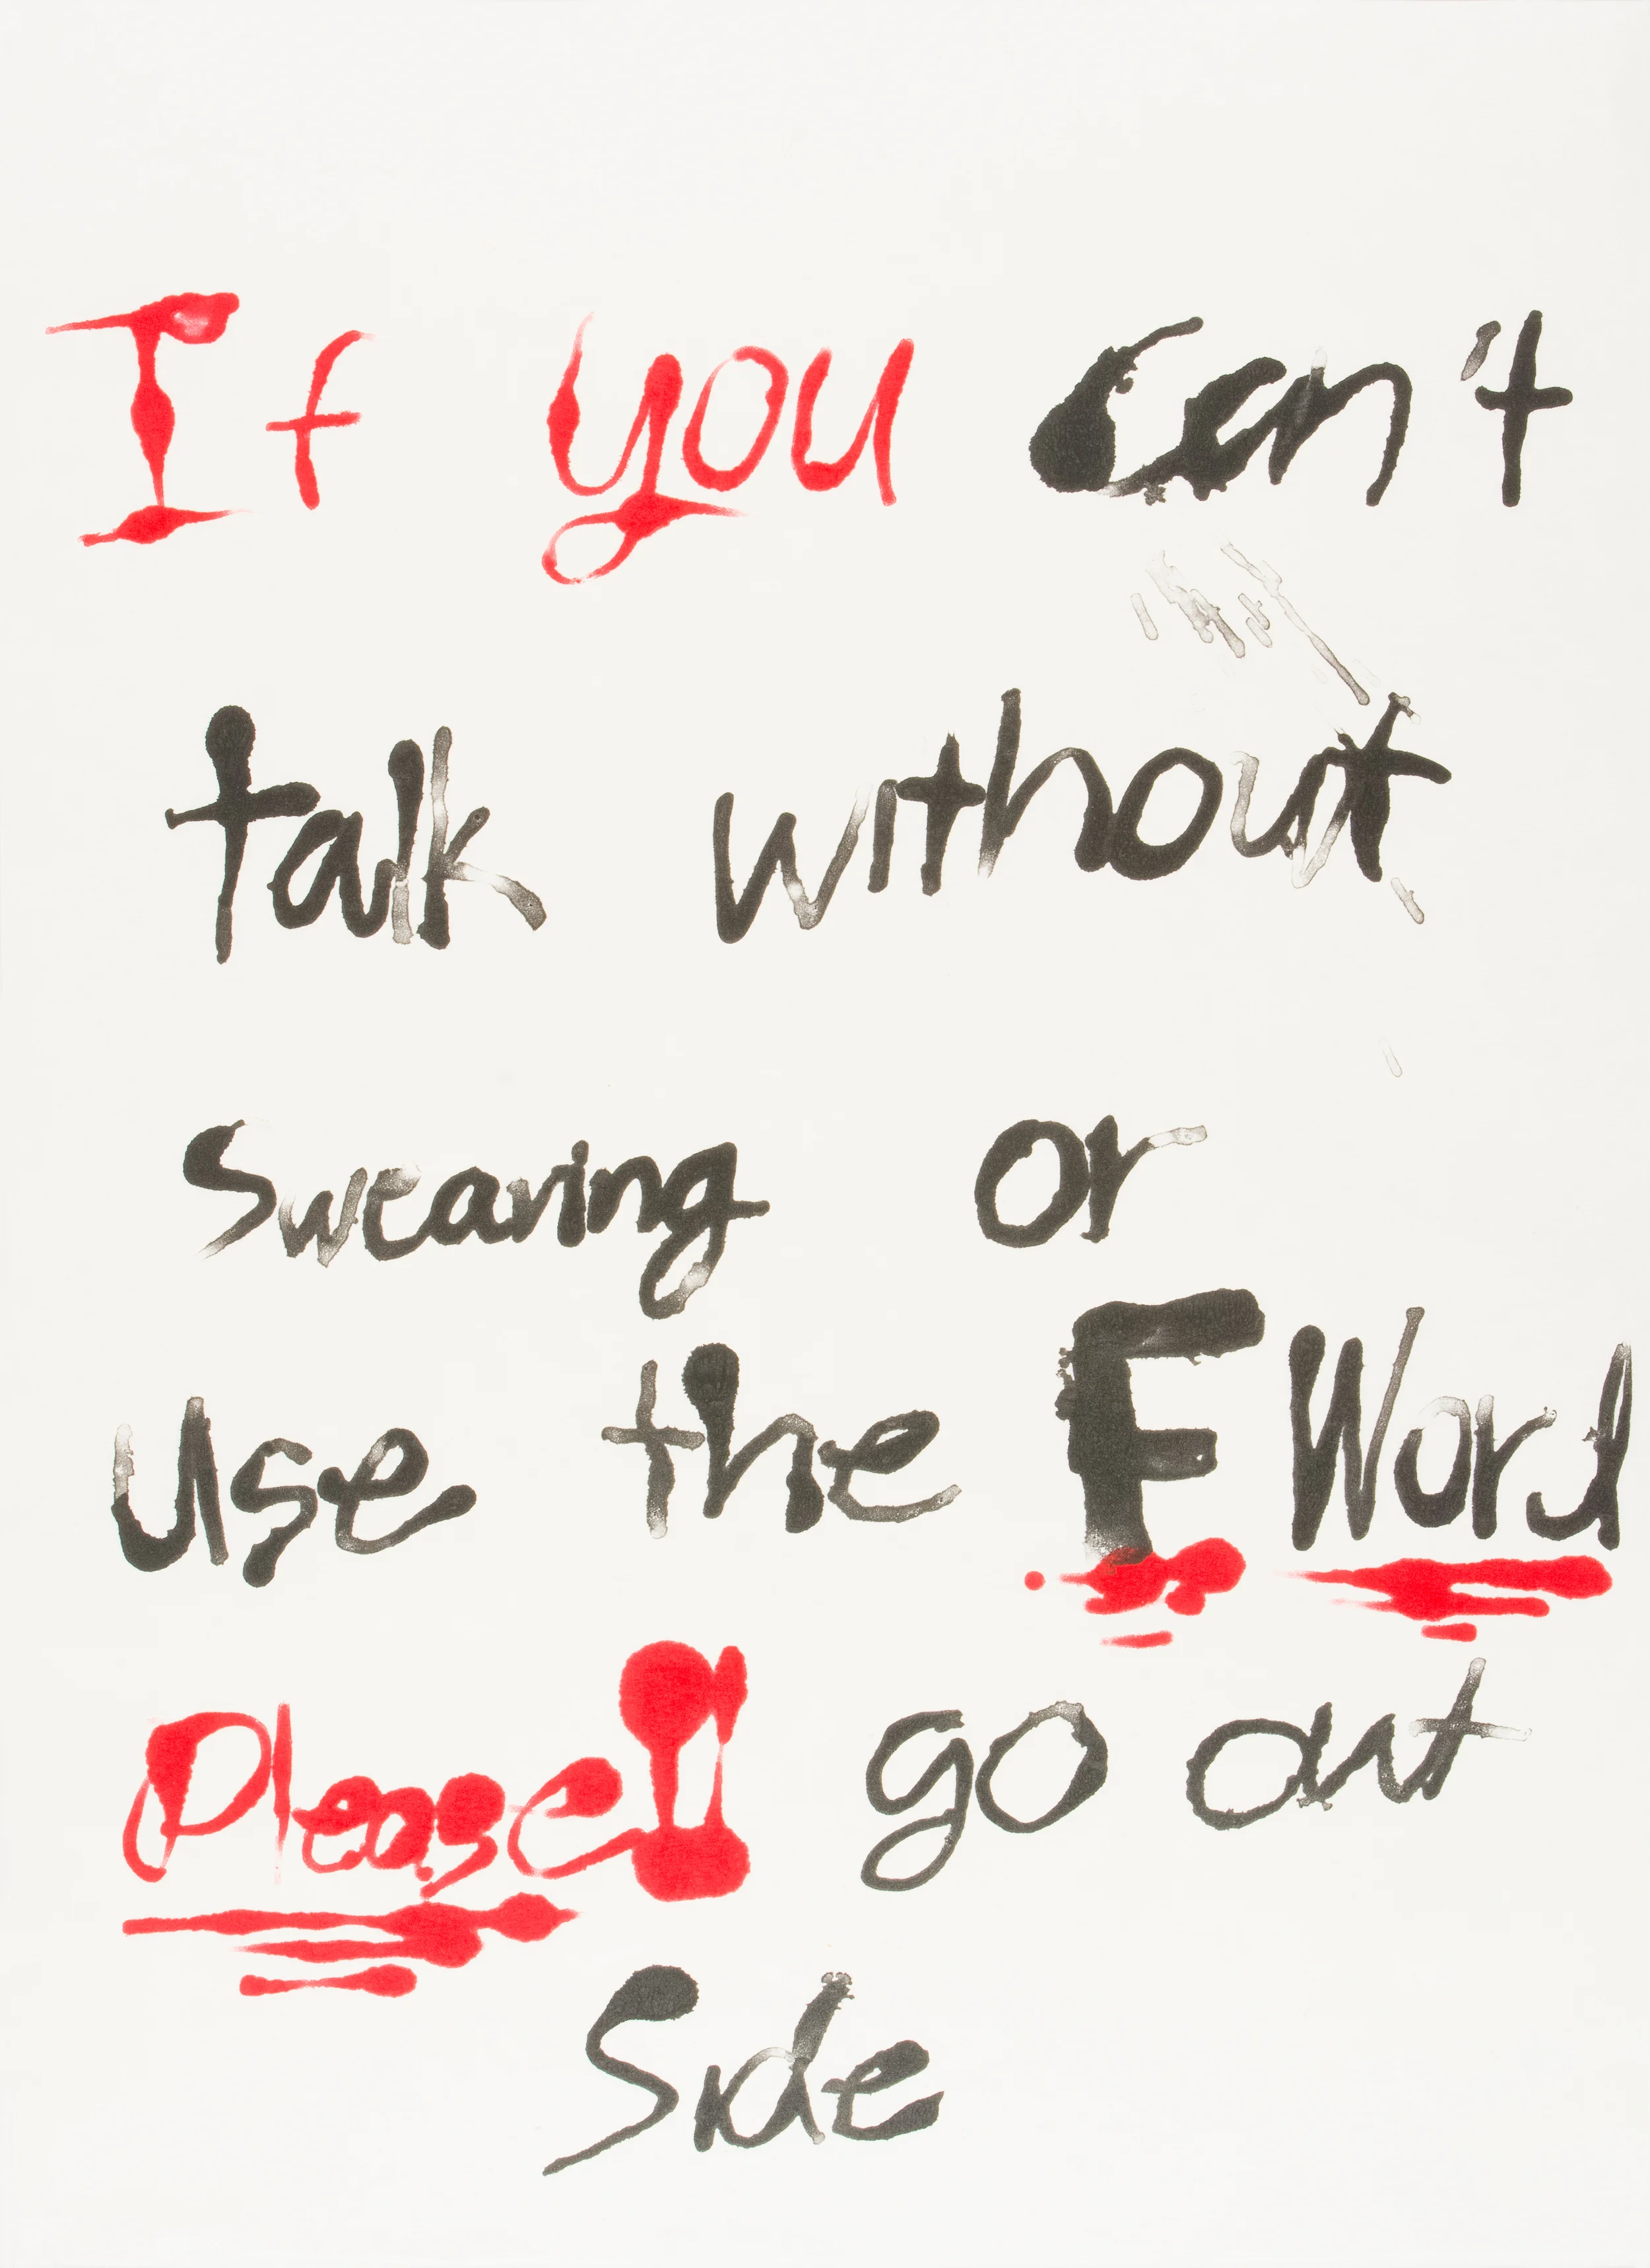 If you Can't
talk without
Swearing or
Use the F Word
Please!! go out
Side